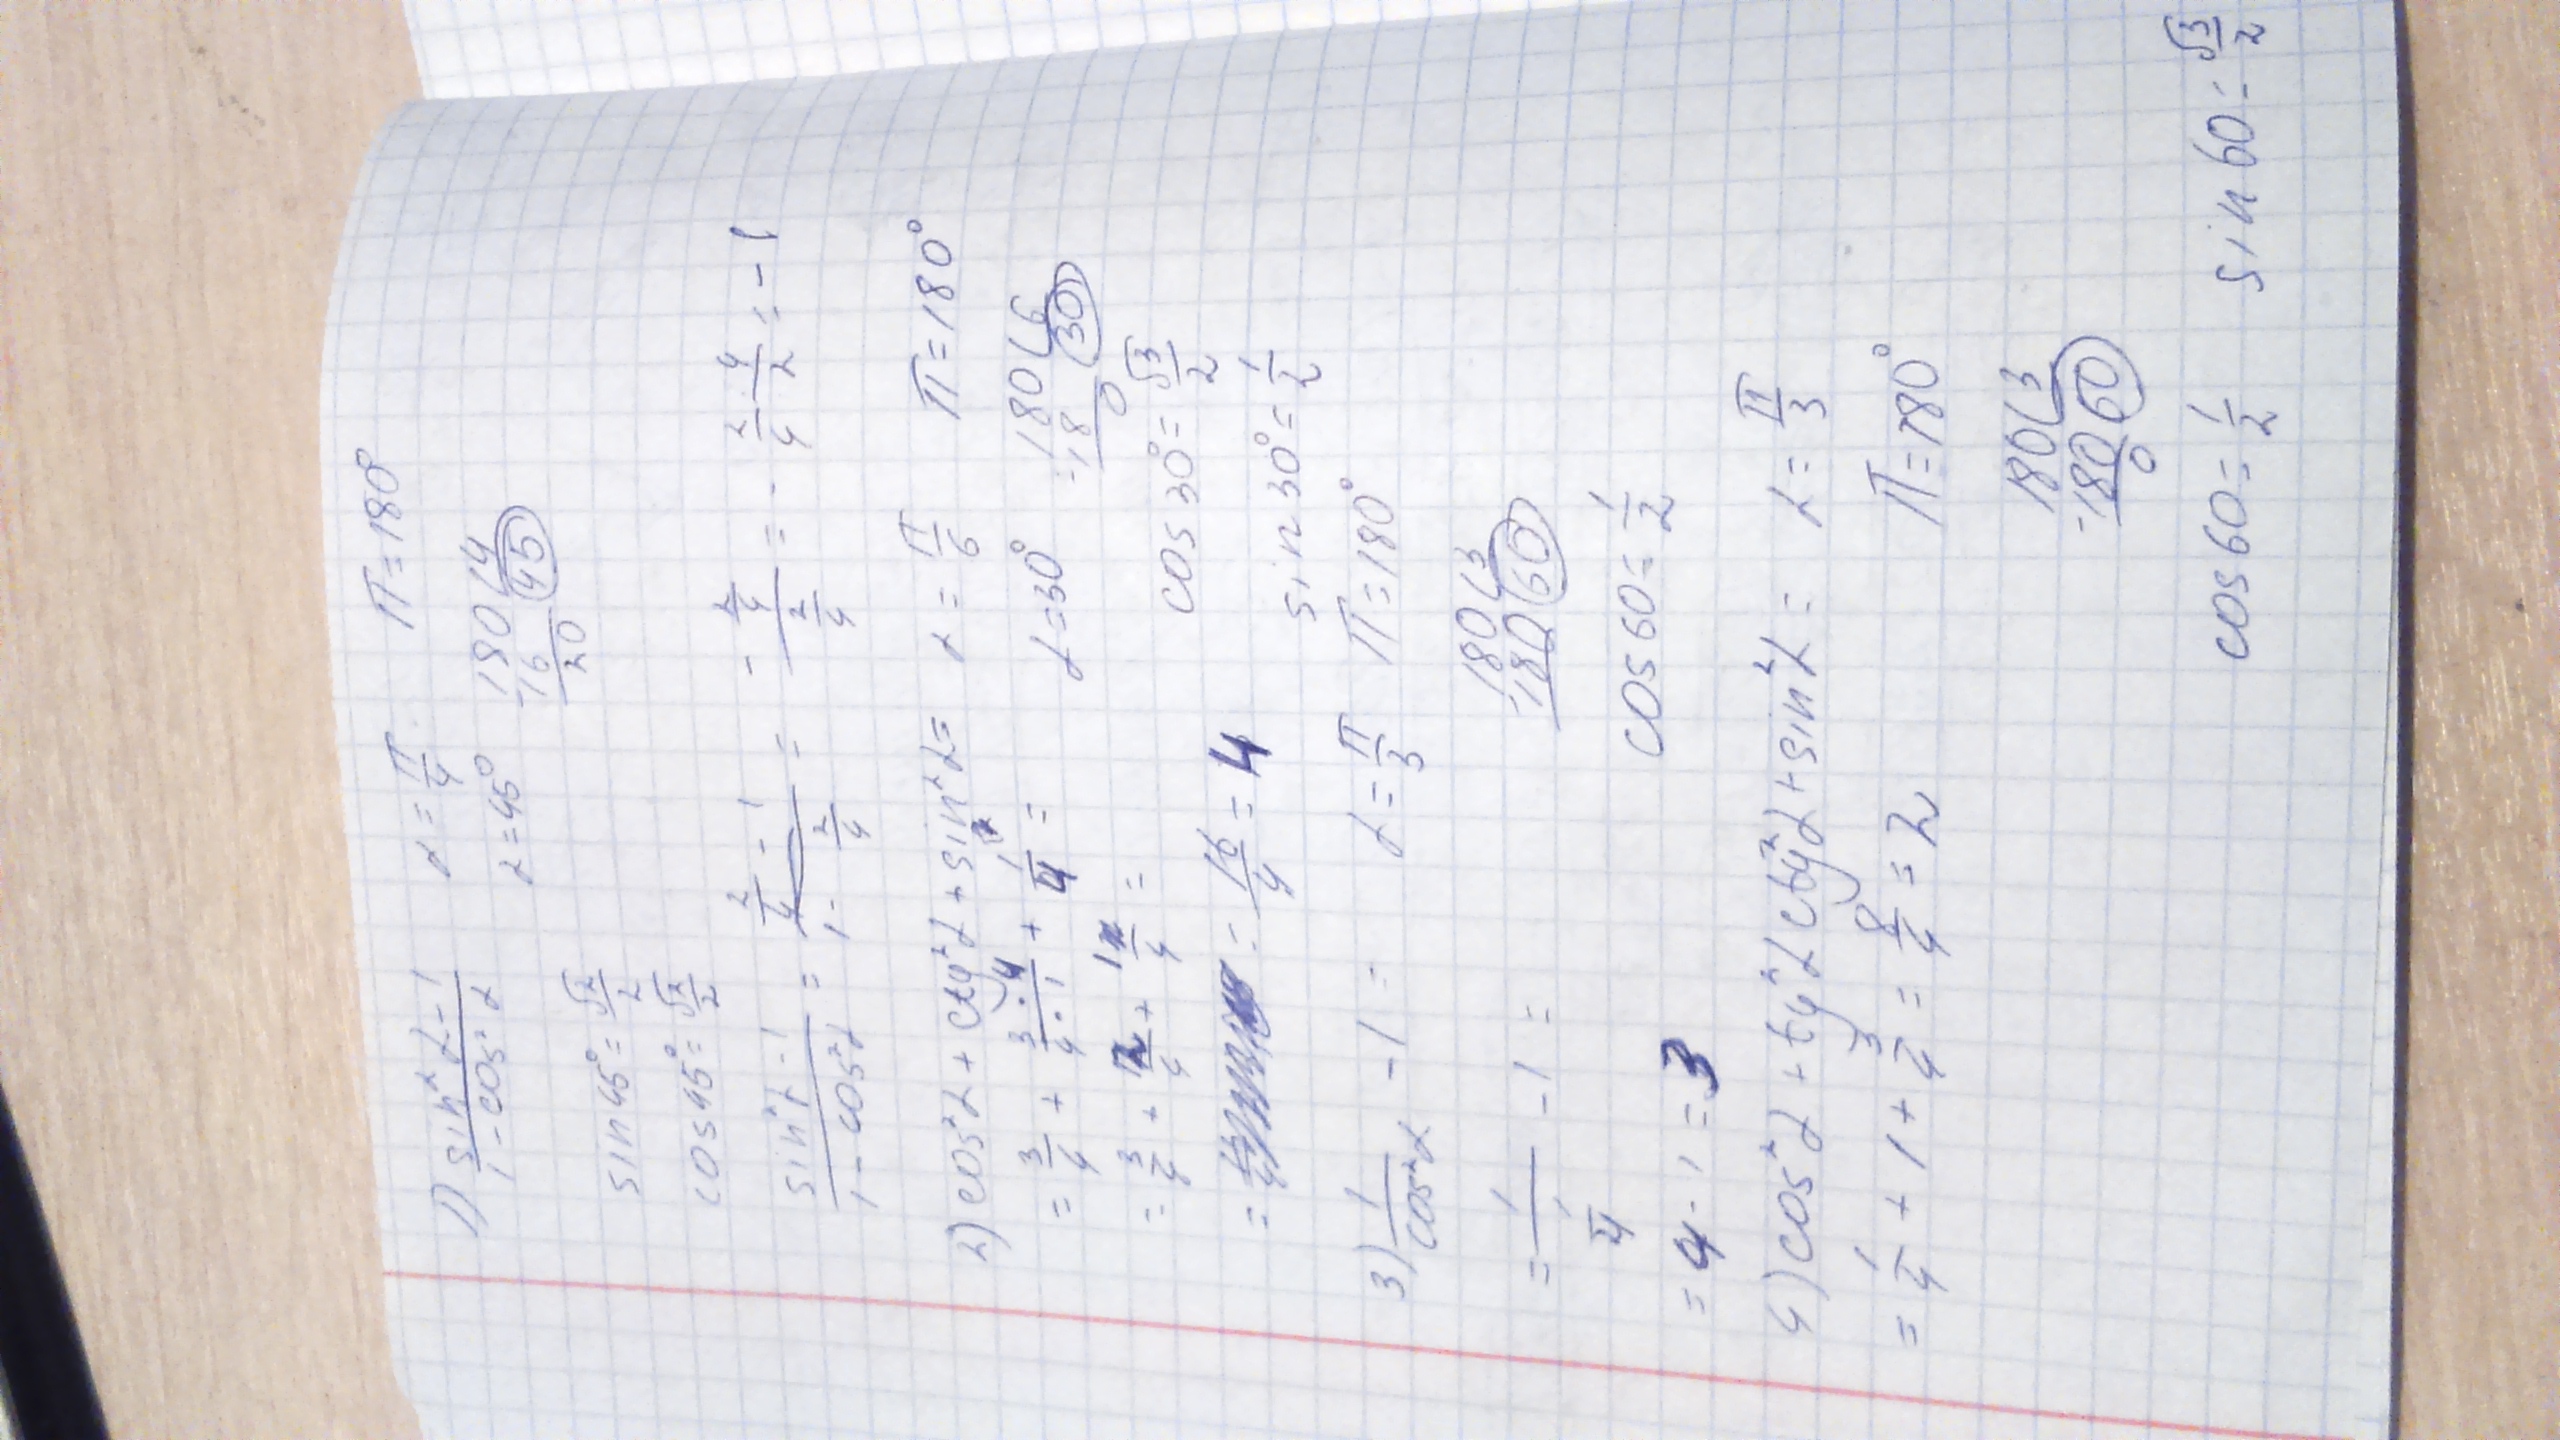 1) (sin²α-1)/(1-cos²α) α=π/4 π=180°
α=45° 180 : 4 = 45
-16
20
sin45°=√2/2
cos45°=√2/2
(sin²α-1)/(1-cos²α) = (2/4-1)/(1-2/4) = -(2/4)/(2/4) = -2/4·4/2=-1
2) cos²α+ctg²α+sin²α= α=π/6 π=180°
=3/4+3/4·4/1+1/4= α=30° 180 : 6 = 30
-18
0
=3/4+12/4+1/4= cos30°=√3/2
=16/4=4 sin30°=1/2
3) 1/cos²α -1= α=π/3 π=180°
=1/(1/4) -1= 180 : 3 = 60
-180
=4-1=3 cos60=1/2
4) cos²α+tg²αctg²α+sin²α= α=π/3
=1/4+1+3/4=8/4=2 π=180°
180 : 3 = 60
-180
0
cos60=1/2 sin60=√3/2